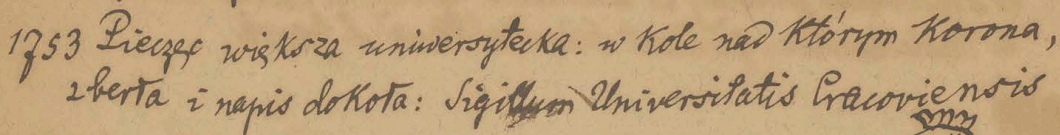 1753 Pieczęć większa uniwersytecka: w kole nad którym korona,
2 berła i napis dokoła: Sigillum Universitatis Cracoviensis